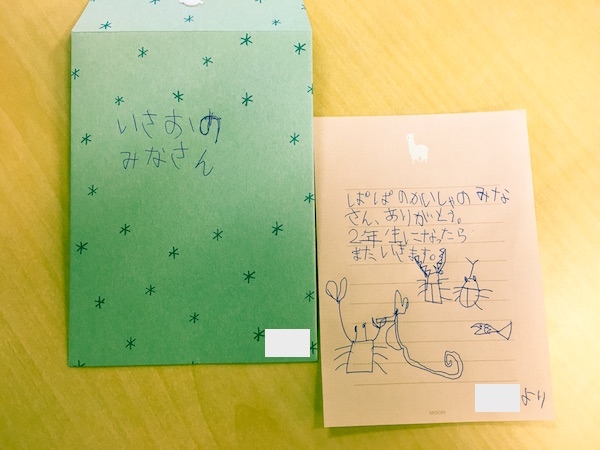 いさおの
みなさん
ぱぱのかいしゃのみな
さん、ありがとう。
2年生になったら
またいきます。
より
MIDORI